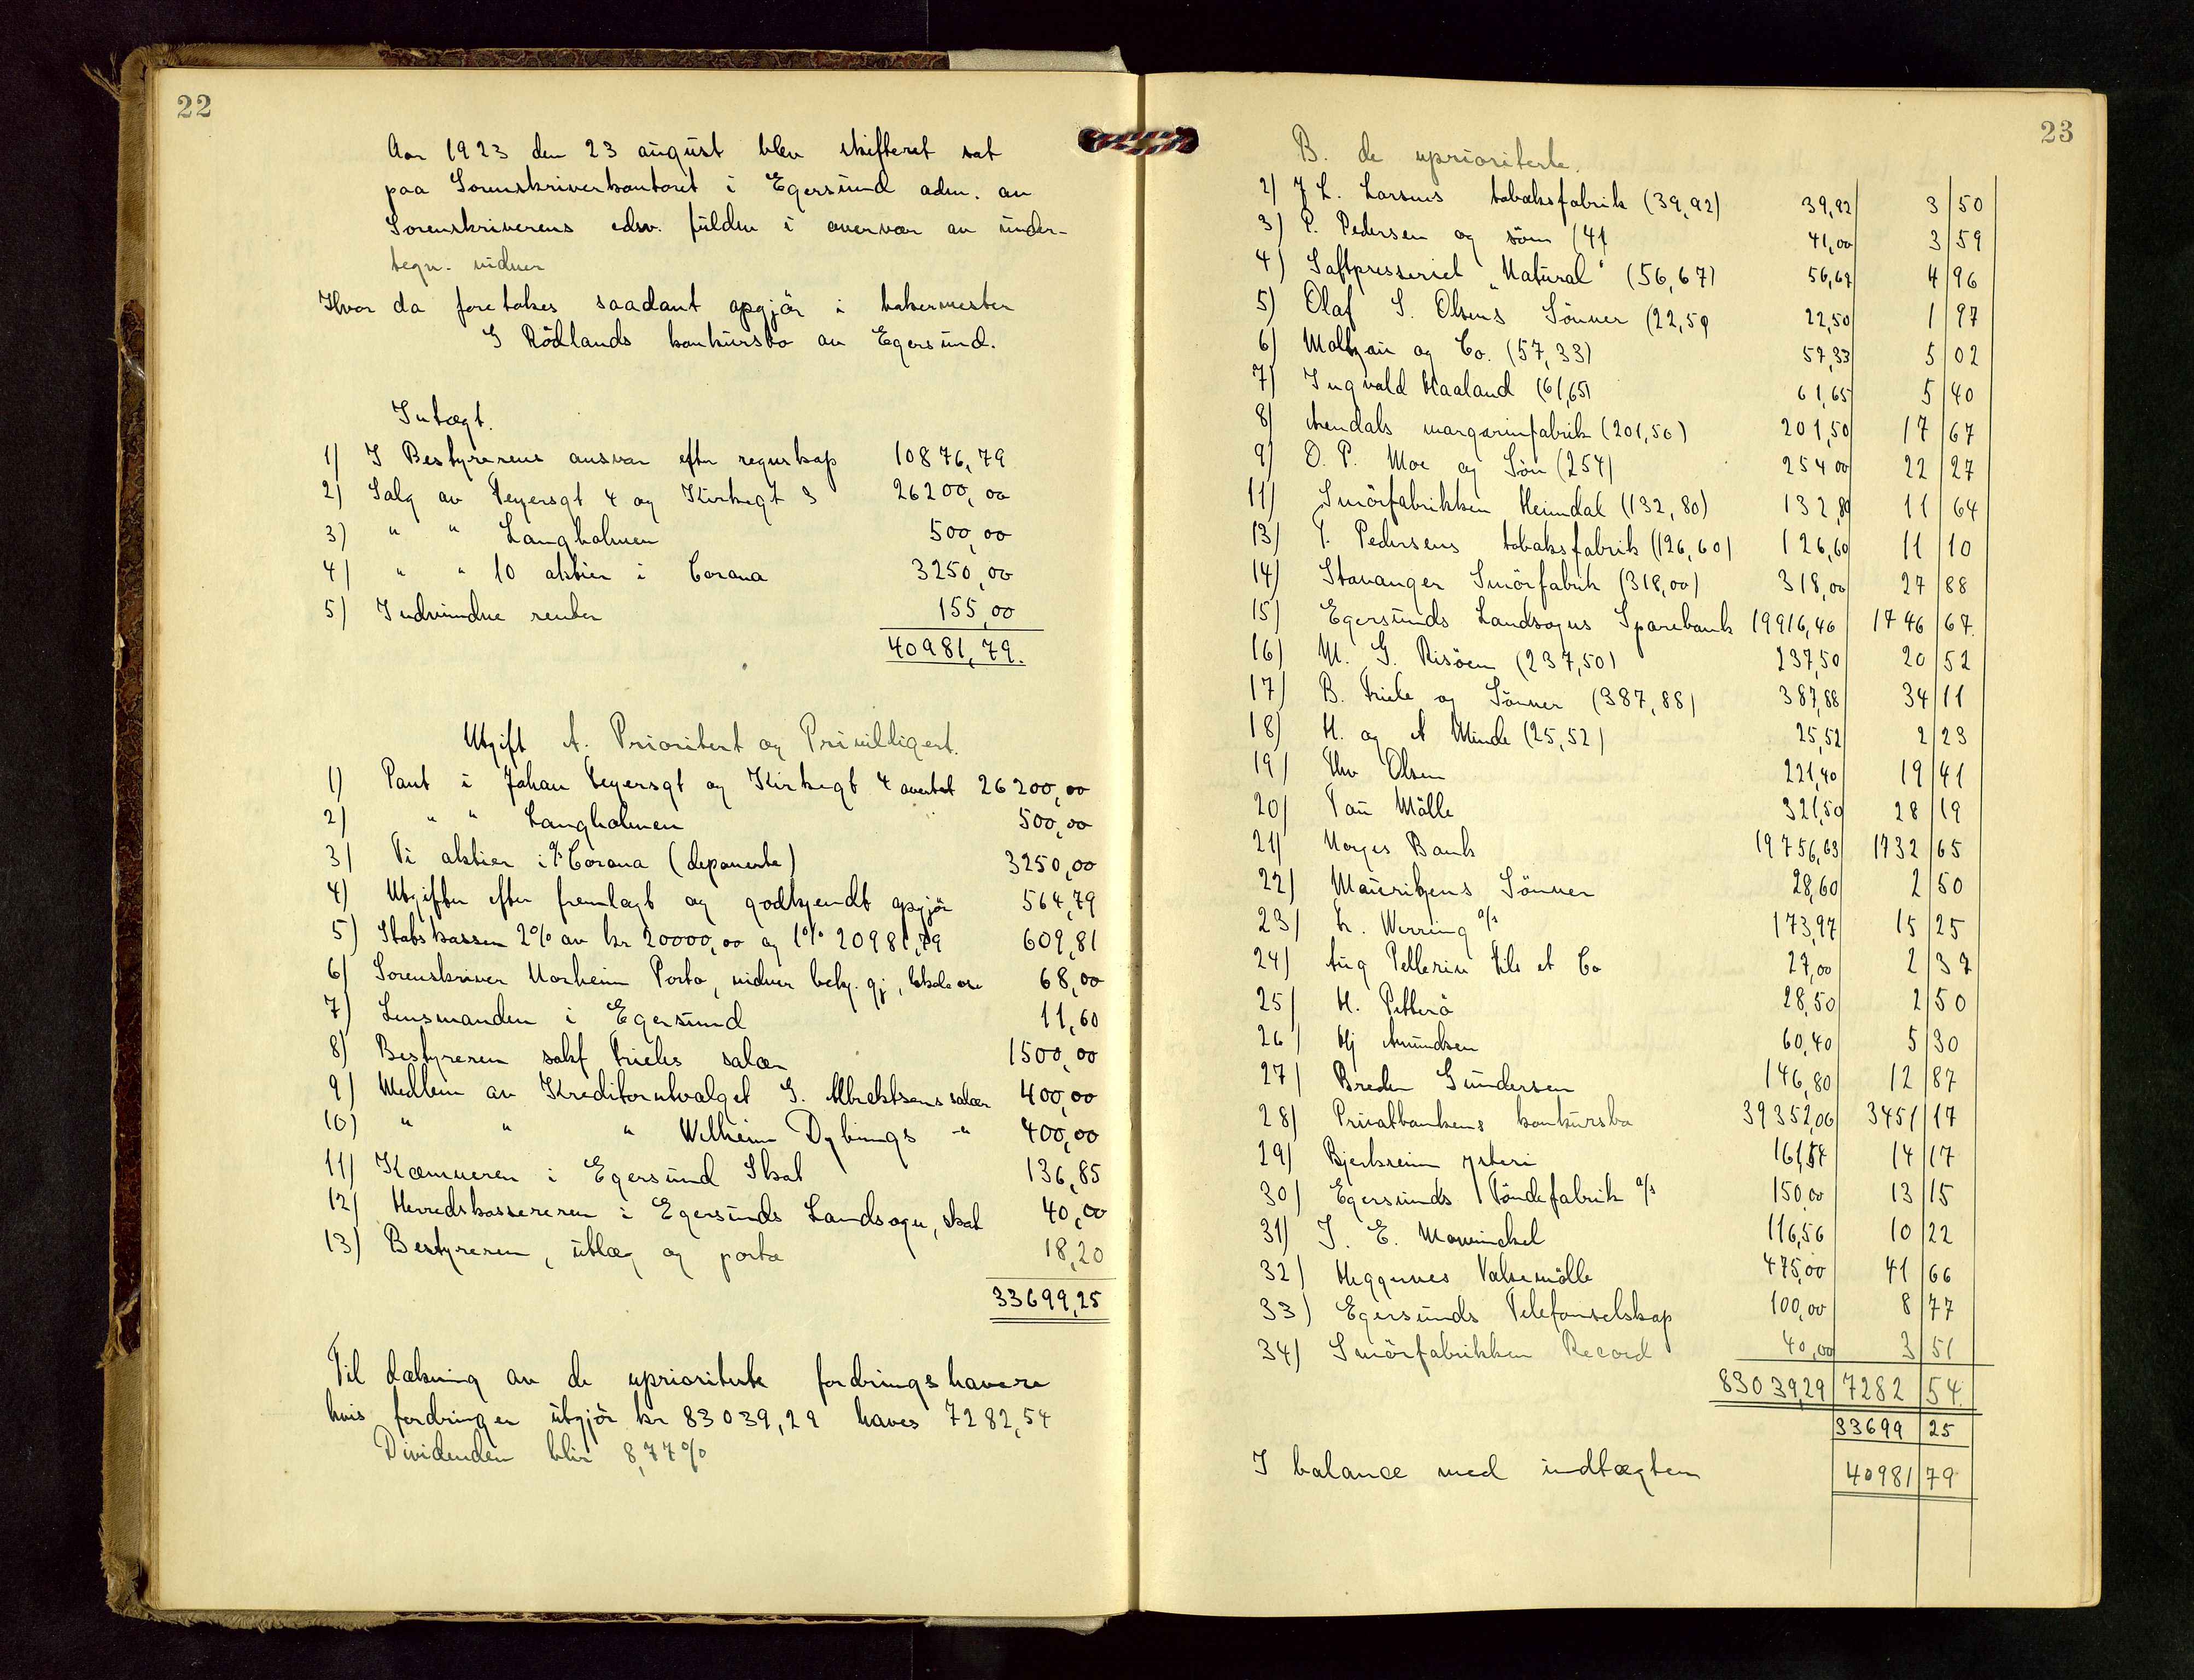 22
Aar 1923 den 23 august blev skifteret sat
paa Sorenskriverkontoret i Egersund adm. av
Sorenskriverens edsv. fuldm i overvær av under-
tegn. vidner
Hvor da foretokes saadant opgjör i bakermester
G Rödlands konkursbo av Egersund.
Intægt.
1) I Bestyrerens ansvar efter regnskap 10876,79
2) Salg av Feyersgt 4 og Kirkegt 3 26200,00
3) " " Langholmen 500,00
4) " " 10 aktier i Corona 3250,00
5) Indvundne renter 155,00
40981,79.
Utgift A. Prioritert og Privilligert.
1) Pant i Johan Feyersgt og Kirkegt 4 26200,00
2) " " Langholmen 500,00
3) Ti aktier i A/S Corona (deponerte) 3250,00
4) Utgifter efter fremlagt og godkjendt opgjör 564,79
5) Statskassen 2% av kr 20000,00 og 1% 20981,79 609,81
6) Sorenskriver Norheim Porto, vidner bekj. gj, 68,00
7) Lensmanden i Egersund 11,60
8) Bestyreren sakf Frieles salær 1500,00
9) Medlem av Kreditorutvalget G. Albrektsens salær 400,00
10) " " " Wilhelm Dybings -" 400,00
11) Kæmneren i Egersund Skat 136,85
12) Herredskassereren i Egersunds Landsogn, skat 40,00
13) Bestyreren, utlæg og porto 18,20
33699,25
Til dækning av de uprioriterte fordringshavere
hvis fordringer utgjör kr 83039,29 haves 7282,54
Dividenden blir 8,77%
23
B. de uprioriterte.
2) J L. Larsens tobaksfabrik (39,92) 39,92 3 50
3) P. Pedersen og sön (41) 41,00 3 59
4) Saftpresseriet "Natural" (56,67) 56,67 4 96
5) Olaf S. Olsens Sönner (22,50) 22,50 1 97
6) Moltzau og Co. (57,33) 57,33 5 02
7) Ingvald Haaland (61,65) 61,65 5 40
8) Arendals margarinfabrik (201,50) 201,50 17 67
9) O. P. Moe og Sön (254) 254 00 22 27
11) Smörfabrikken Heimdal (132,80) 132,80 11 64
13) T. Pedersens tobaksfabrik (126,60) 126,60 11 10
14) Stavanger Smörfabrik (318,00) 318,00 27 88
15) Egersunds Landsogns Sparebank 19916,46 1746 67.
16) M. G. Risöen (237,50) 237,50 20 52
17) B. Friele og Sönner (387,88) 387,88 34 11
18) H. og A Minde (25,52) 25,52 2 23
19) Thv Olsen 221,40 19 41
20) Tau Mölle 321,50 28 19
21) Norges Bank 19756,63 1732 65
22) Mauritzens Sönner 28,60 2 50
23) Werring A/S 173,97 15 25
24) Aug Pellerin Fils et Co 27,00 2 37
25) H. Petterö 28,50 2 50
26) Hj Amundsen 60,40 5 30
27) Breder Gundersen 146,80 12 87
28) Privatbankens konkursbo 39352,00 3451 17
29) Bjerkreim ysteri 161,54 14 17
30) Egersunds Töndefabrik A/S 150,00 13 15
31) J. E. Mowinckel 116,56 10 22
32) Heggernes Valsemölle 475,00 41 66
33) Egersunds Telefonselskap 100,00 8 77
34) Smörfabrikken Record 40,00 3 51
83039,29 7282 54.
33699 25
I balance med indtægten 40981 79